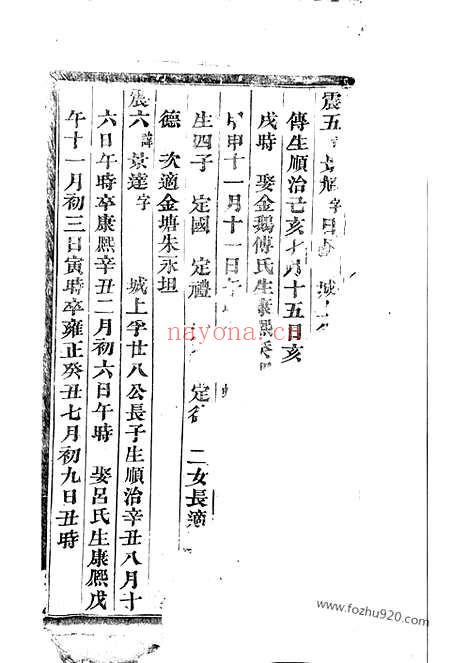 震五 字 城
傳生順治己亥 月十五日亥
戌時 娶金鵝傅氏生康熙
甲申十一月十一日
生四子 定國 定禮 定 二女長適
德 次適金塘朱永坦
震六 諱景達字 城上孚廿八公長子生順治辛丑八月十
六日午時卒康熙辛丑二月初六日午時 娶呂氏生康熙戊
午十一月初三日寅時卒雍正癸丑七月初九日丑時
nayona.cn
www.fozhu920.com